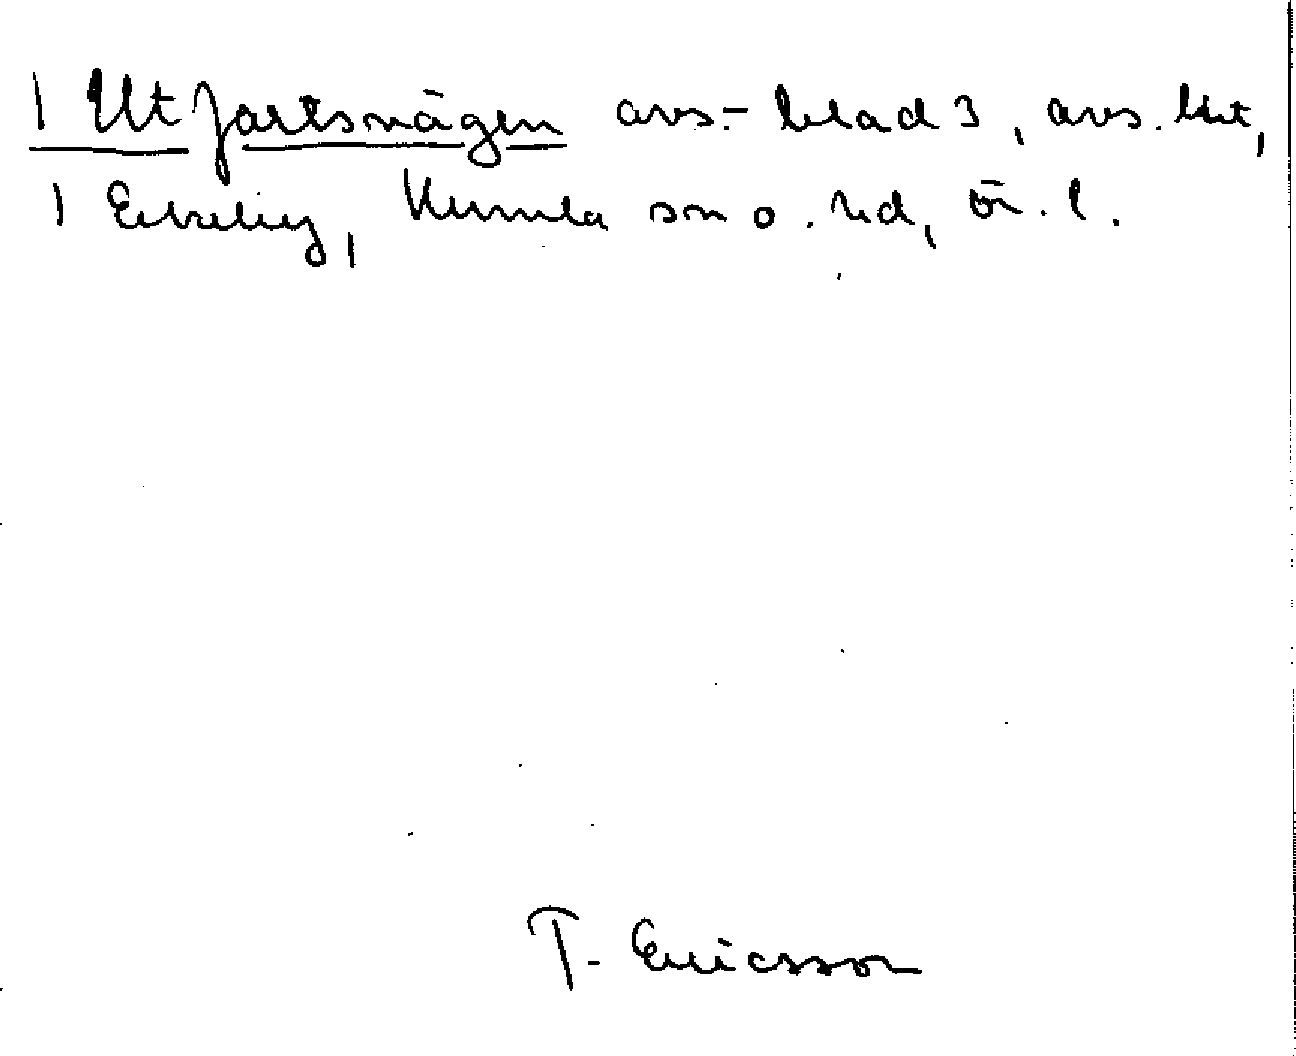 1 Utfartsvägen avs.- blad 3, avs. 
1 Kumla sn o. hd, ör. l.
T. Ericsson